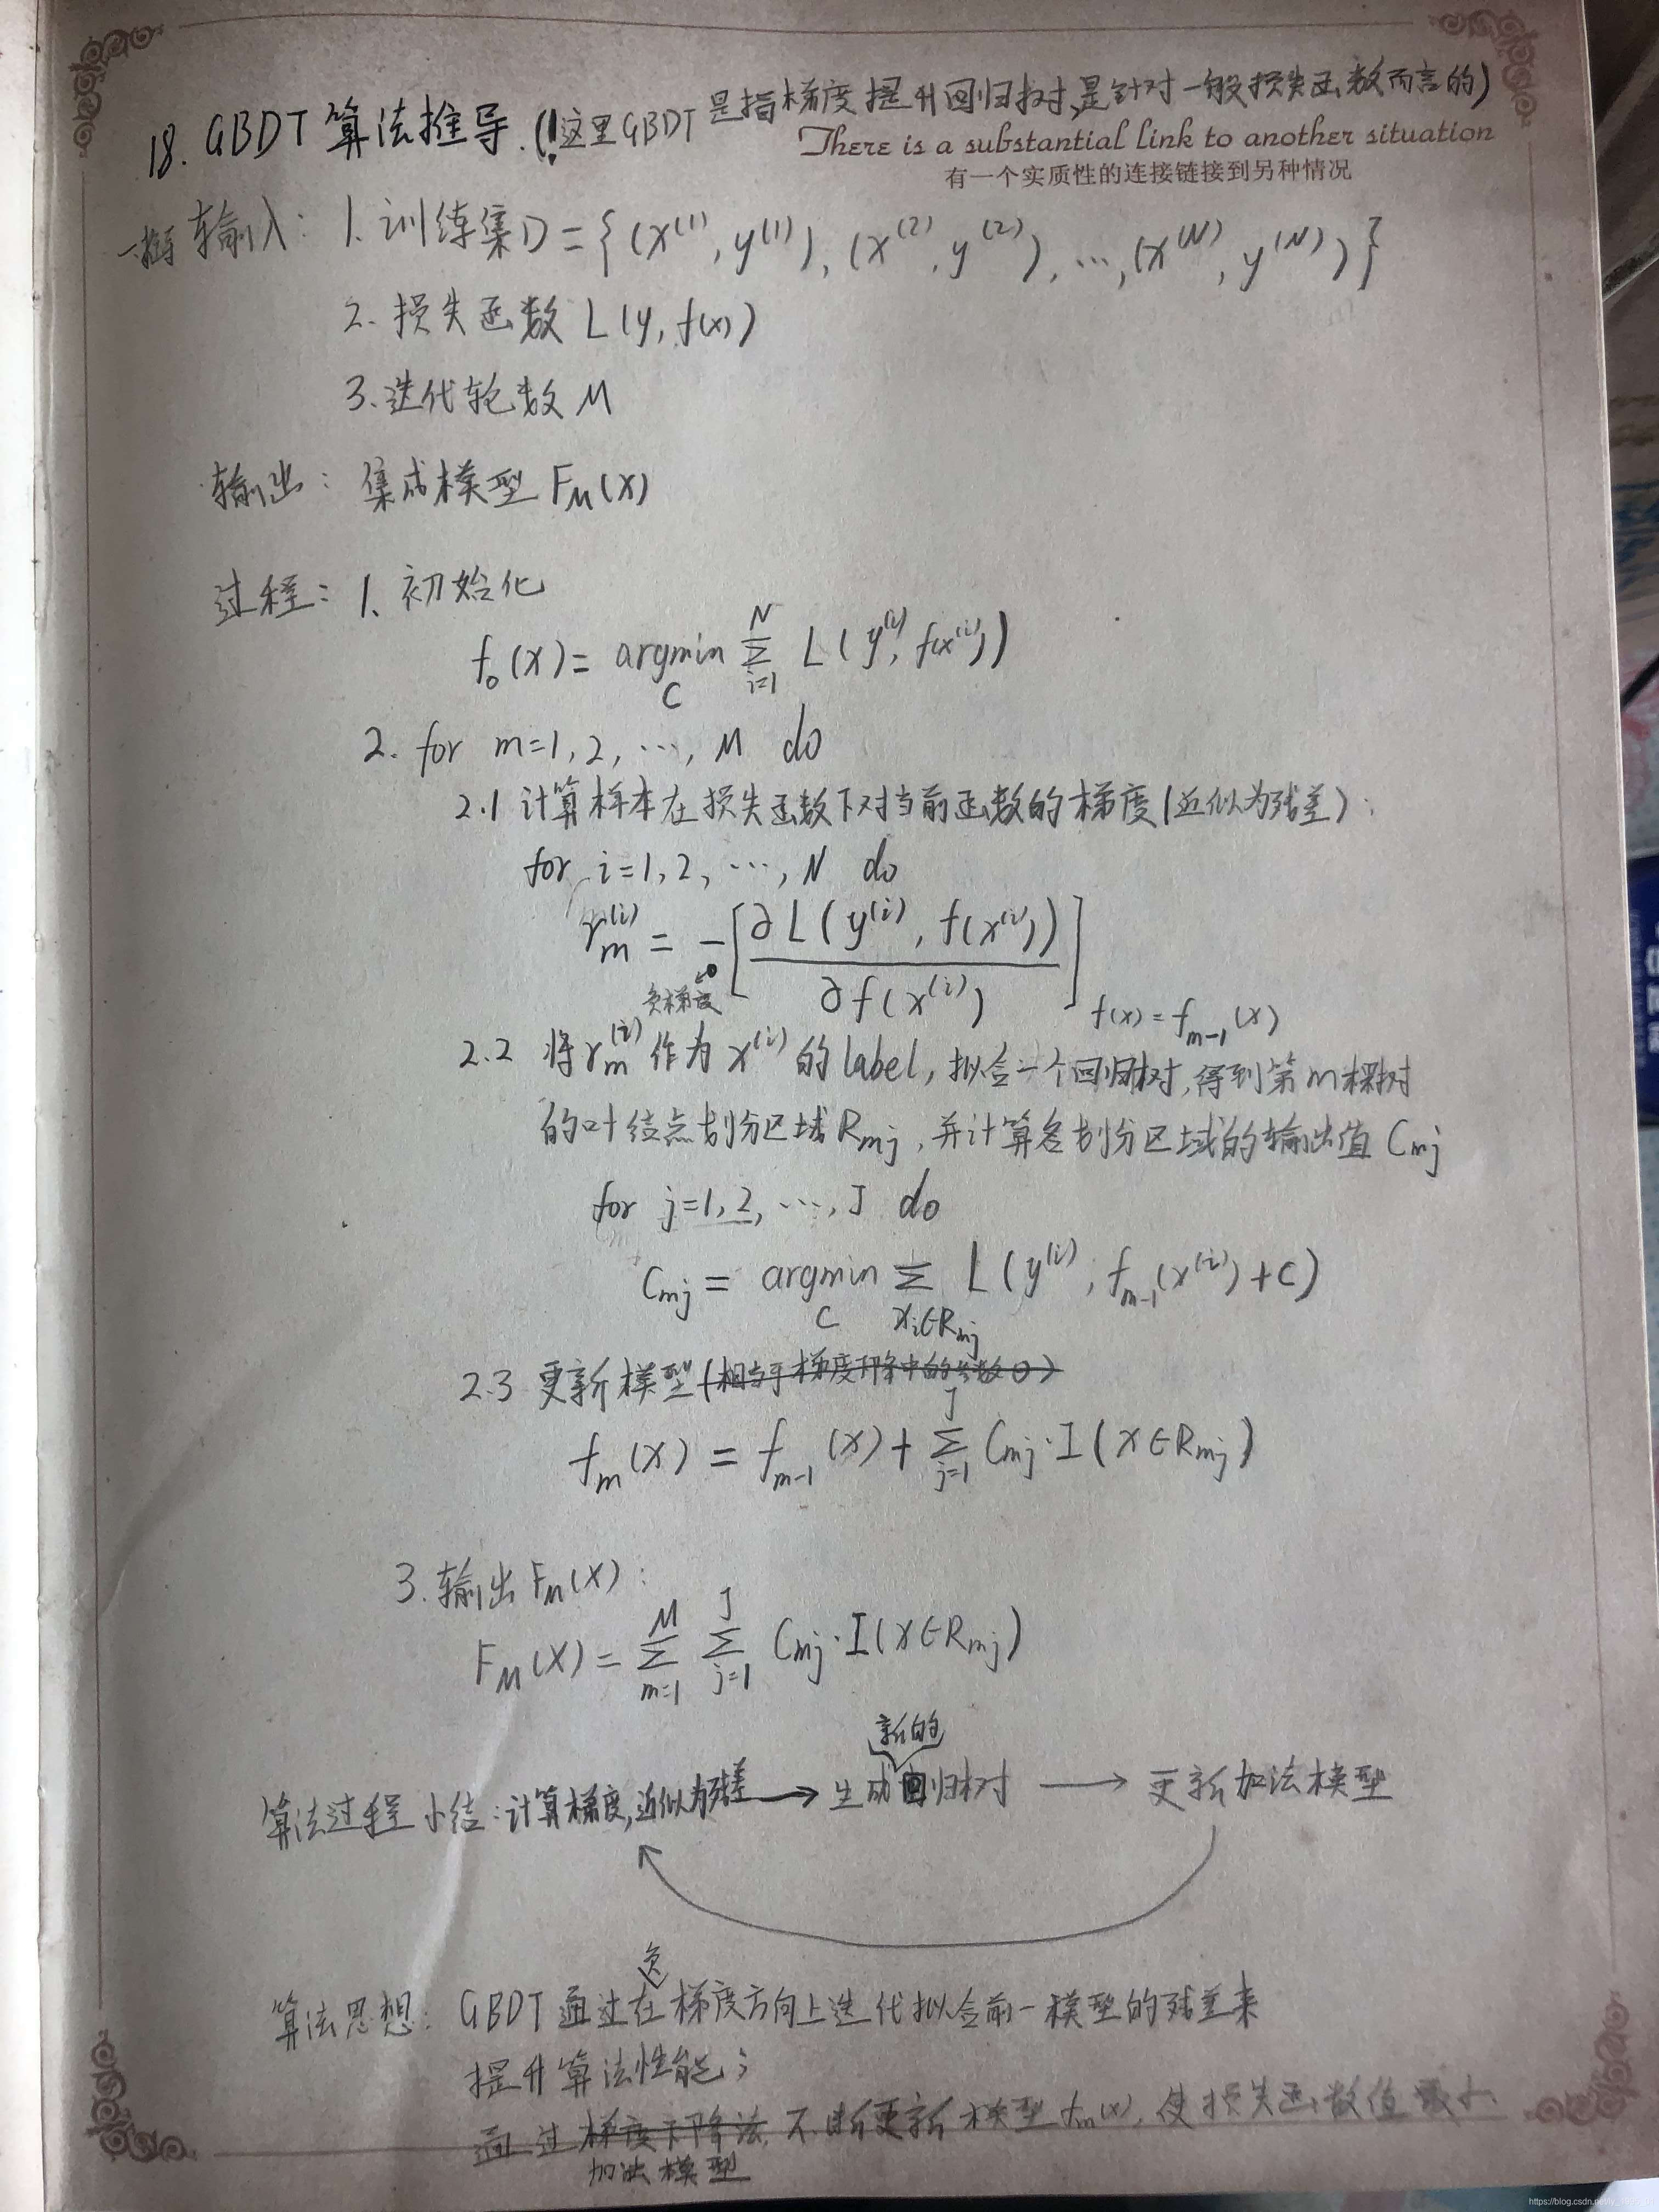 18. GBDT 算法推导. (!这里GBDT 是指梯度提升回归树,是针对一般损失函数而言的)
There is a substantial link to another situation
有一个实质性的连接链接到另种情况
输入: 1. 训练集D = {(x^(1), y^(1)), (x^(2), y^(2)), ..., (x^(N), y^(N))}
2. 损失函数 L(y, f(x))
3. 迭代轮数 M
输出: 集成模型 F_M(x)
过程: 1. 初始化
f_0(x) = argmin_C Σ_{i=1}^N L(y^(i), f(x^(i)))
2. for m=1,2,…,M do
2.1 计算样本在损失函数下对当前函数的梯度(近似为残差):
for i=1,2,…,N do
r_m^(i) = -[∂L(y^(i), f(x^(i))) / ∂f(x^(i))]_{f(x)=f_{m-1}(x)}
负梯度
2.2 将r_m^(i)作为x^(i)的label,拟合一个回归树,得到第m棵树
的叶结点划分区域R_mj,并计算各划分区域的输出值 C_mj
for j=1,2,…,J do
C_mj = argmin_C Σ_{x_i∈R_mj} L(y^(i), f_{m-1}(x^(i))+C)
2.3 更新模型(相当于梯度下降中的参数θ)
f_m(x) = f_{m-1}(x) + Σ_{j=1}^J C_mj·I(x∈R_mj)
3. 输出F_M(x):
F_M(x) = Σ_{m=1}^M Σ_{j=1}^J C_mj·I(x∈R_mj)
新的
算法过程小结: 计算梯度,近似为残差 → 生成回归树 → 更新加法模型
负
算法思想: GBDT 通过在梯度方向上迭代拟合前一模型的残差来
提升算法性能;
通过梯度下降法 不断更新模型f_m(x), 使损失函数值最小
加法模型